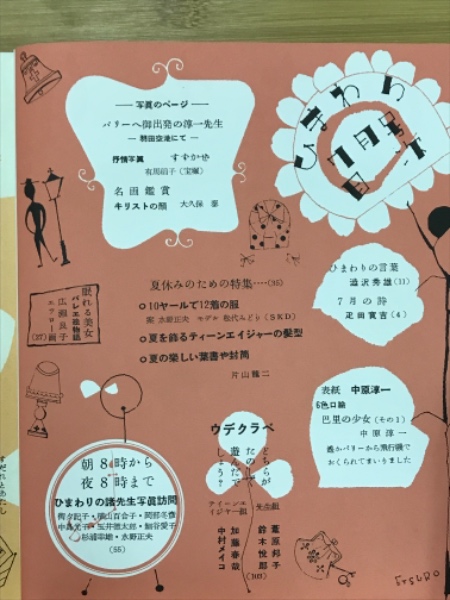 ひまわり
7月号
目次
── 写眞のページ ──
パリーへ御出発の淳一先生
― 羽田空港にて ―
抒情写眞 すずかけ
有馬稻子(宝塚)
名画鑑賞
キリストの顔 大久保 泰
ひまわりの言葉
澁沢秀雄(11)
7月の詩
疋田寛吉(4)
夏休みのための特集‥‥(35)
10ヤールで12着の服
案 水野正夫 モデル 松代みどり(SKD)
夏を飾るティーンエイジャーの髮型
夏の樂しい葉書や封筒
片山龍二
眠れる美女
バレエ絵物語
広瀬良子
エテロー画
(27)
表紙 中原淳一
6色口絵
巴里の少女(その1)
中原淳一
遙かパリーから飛行機で
おくられてまいりました
朝8時から
夜8時まで
ひまわりの諸先生写眞訪問
横山百合子・岡部冬彦
玉井徳太郎・
杉浦幸雄・水野正夫
(55)
ウデクラベ
どちらが
たのしく
遊んだで
しょう?
ティーンエ
イジャー組
先生組
加藤春哉
中村メイコ
葦原邦子
鈴木悦郎
(103)
ETSURO